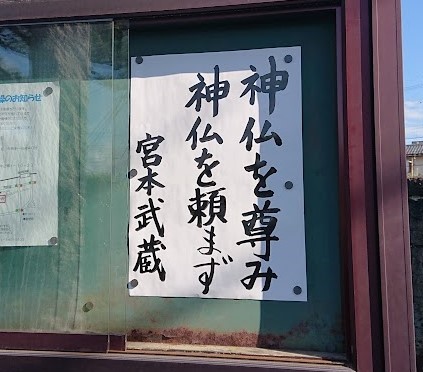 神仏を尊み
神仏を頼まず
宮本武蔵
のお知らせ